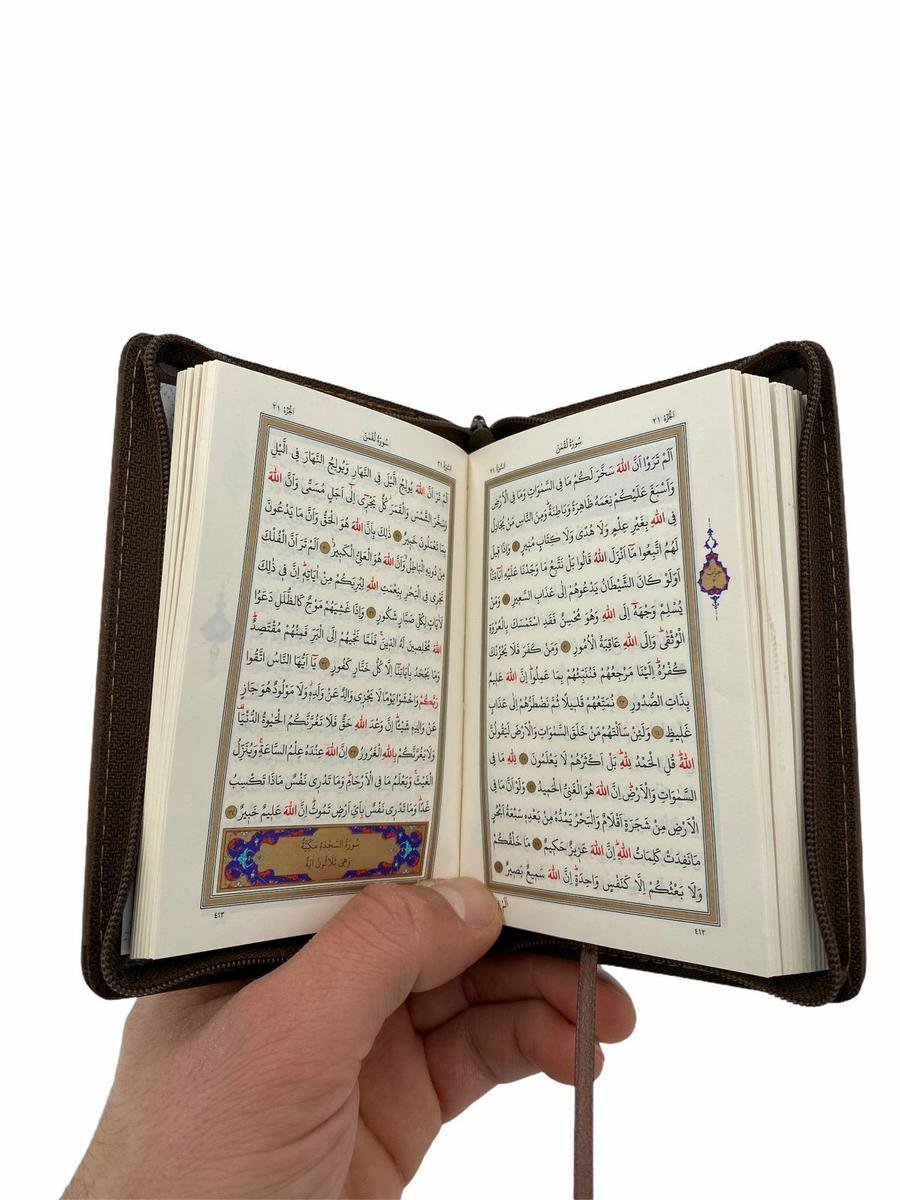 اَلْجُزْءُ ٢١
سُورَةُ لُقْمٰنَ
اَلَمْ تَرَوْا اَنَّ اللّٰهَ سَخَّرَ لَكُمْ مَا فِي السَّمٰوَاتِ وَمَا فِي الْاَرْضِ
وَاَسْبَغَ عَلَيْكُمْ نِعَمَهُ ظَاهِرَةً وَبَاطِنَةًۜ وَمِنَ النَّاسِ مَنْ يُجَادِلُ
فِي اللّٰهِ بِغَيْرِ عِلْمٍ وَلَا هُدًى وَلَا كِتَابٍ مُنِيرٍ ﴿٢٠﴾ وَاِذَا قِيلَ
لَهُمُ اتَّبِعُوا مَٓا اَنْزَلَ اللّٰهُ قَالُوا بَلْ نَتَّبِعُ مَا وَجَدْنَا عَلَيْهِ اٰبَٓاءَنَاۜ
اَوَلَوْ كَانَ الشَّيْطَانُ يَدْعُوهُمْ اِلٰى عَذَابِ السَّعِيرِ ﴿٢١﴾ وَمَنْ
يُسْلِمْ وَجْهَهُٓ اِلَى اللّٰهِ وَهُوَ مُحْسِنٌ فَقَدِ اسْتَمْسَكَ بِالْعُرْوَةِ
الْوُثْقٰىۜ وَاِلَى اللّٰهِ عَاقِبَةُ الْاُمُورِ ﴿٢٢﴾ وَمَنْ كَفَرَ فَلَا يَحْزُنْكَ
كُفْرُهُۜ اِلَيْنَا مَرْجِعُهُمْ فَنُنَبِّئُهُمْ بِمَا عَمِلُواۜ اِنَّ اللّٰهَ عَلِيمٌ
بِذَاتِ الصُّدُورِ ﴿٢٣﴾ نُمَتِّعُهُمْ قَلِيلًا ثُمَّ نَضْطَرُّهُمْ اِلٰى عَذَابٍ
غَلِيظٍ ﴿٢٤﴾ وَلَئِنْ سَاَلْتَهُمْ مَنْ خَلَقَ السَّمٰوَاتِ وَالْاَرْضَ لَيَقُولُنَّ
اللّٰهُۜ قُلِ الْحَمْدُ لِلّٰهِۜ بَلْ اَكْثَرُهُمْ لَا يَعْلَمُونَ ﴿٢٥﴾ لِلّٰهِ مَا فِي
السَّمٰوَاتِ وَالْاَرْضِۜ اِنَّ اللّٰهَ هُوَ الْغَنِيُّ الْحَمِيدُ ﴿٢٦﴾ وَلَوْ اَنَّ مَا فِي
الْاَرْضِ مِنْ شَجَرَةٍ اَقْلَامٌ وَالْبَحْرُ يَمُدُّهُ مِنْ بَعْدِهِ سَبْعَةُ اَبْحُرٍ
مَا نَفِدَتْ كَلِمَاتُ اللّٰهِۜ اِنَّ اللّٰهَ عَزِيزٌ حَكِيمٌ ﴿٢٧﴾ مَا خَلْقُكُمْ
وَلَا بَعْثُكُمْ اِلَّا كَنَفْسٍ وَاحِدَةٍۜ اِنَّ اللّٰهَ سَمِيعٌ بَصِيرٌ ﴿٢٨﴾
٤١٢
اَلْجُزْءُ ٢١
سُورَةُ لُقْمٰنَ
اَلَمْ تَرَ اَنَّ اللّٰهَ يُولِجُ الَّيْلَ فِي النَّهَارِ وَيُولِجُ النَّهَارَ فِي الَّيْلِ
وَسَخَّرَ الشَّمْسَ وَالْقَمَرَ كُلٌّ يَجْرِٓي اِلٰٓى اَجَلٍ مُسَمًّى وَاَنَّ اللّٰهَ
بِمَا تَعْمَلُونَ خَبِيرٌ ﴿٢٩﴾ ذٰلِكَ بِاَنَّ اللّٰهَ هُوَ الْحَقُّ وَاَنَّ مَا يَدْعُونَ
مِنْ دُونِهِ الْبَاطِلُۙ وَاَنَّ اللّٰهَ هُوَ الْعَلِيُّ الْكَبِيرُ ﴿٣٠﴾ اَلَمْ تَرَ اَنَّ الْفُلْكَ
تَجْرِي فِي الْبَحْرِ بِنِعْمَتِ اللّٰهِ لِيُرِيَكُمْ مِنْ اٰيَاتِهِۜ اِنَّ فِي ذٰلِكَ
لَاٰيَاتٍ لِكُلِّ صَبَّارٍ شَكُورٍ ﴿٣١﴾ وَاِذَا غَشِيَهُمْ مَوْجٌ كَالظُّلَلِ دَعَوُا
اللّٰهَ مُخْلِصِينَ لَهُ الدِّينَۚ فَلَمَّا نَجّٰيهُمْ اِلَى الْبَرِّ فَمِنْهُمْ مُقْتَصِدٌۜ
وَمَا يَجْحَدُ بِاٰيَاتِنَٓا اِلَّا كُلُّ خَتَّارٍ كَفُورٍ ﴿٣٢﴾ يَٓا اَيُّهَا النَّاسُ اتَّقُوا
رَبَّكُمْ وَاخْشَوْا يَوْمًا لَا يَجْزِي وَالِدٌ عَنْ وَلَدِهِۘ وَلَا مَوْلُودٌ هُوَ جَازٍ
عَنْ وَالِدِهِ شَيْـًٔاۜ اِنَّ وَعْدَ اللّٰهِ حَقٌّ فَلَا تَغُرَّنَّكُمُ الْحَيٰوةُ الدُّنْيَا۠
وَلَا يَغُرَّنَّكُمْ بِاللّٰهِ الْغَرُورُ ﴿٣٣﴾ اِنَّ اللّٰهَ عِنْدَهُ عِلْمُ السَّاعَةِۚ وَيُنَزِّلُ
الْغَيْثَۚ وَيَعْلَمُ مَا فِي الْاَرْحَامِۜ وَمَا تَدْرِي نَفْسٌ مَاذَا تَكْسِبُ
غَدًاۜ وَمَا تَدْرِي نَفْسٌ بِاَيِّ اَرْضٍ تَمُوتُۜ اِنَّ اللّٰهَ عَلِيمٌ خَبِيرٌ ﴿٣٤﴾
سُورَةُ السَّجْدَةِ مَكِّيَّةٌ
وَهِيَ ثَلَاثُونَ اٰيَةً
٤١٣